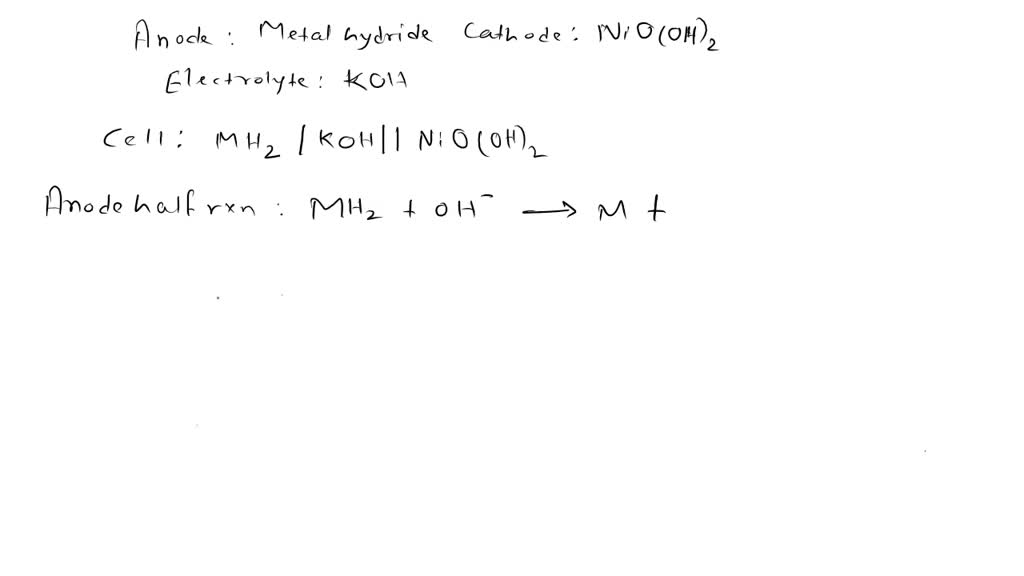 Anode: Metal hydride Cathode: NiO(OH)₂
Electrolyte: KOH
Cell: MH₂ / KOH || NiO(OH)₂
Anode half rxn: MH₂ + OH⁻ ⟶ M +